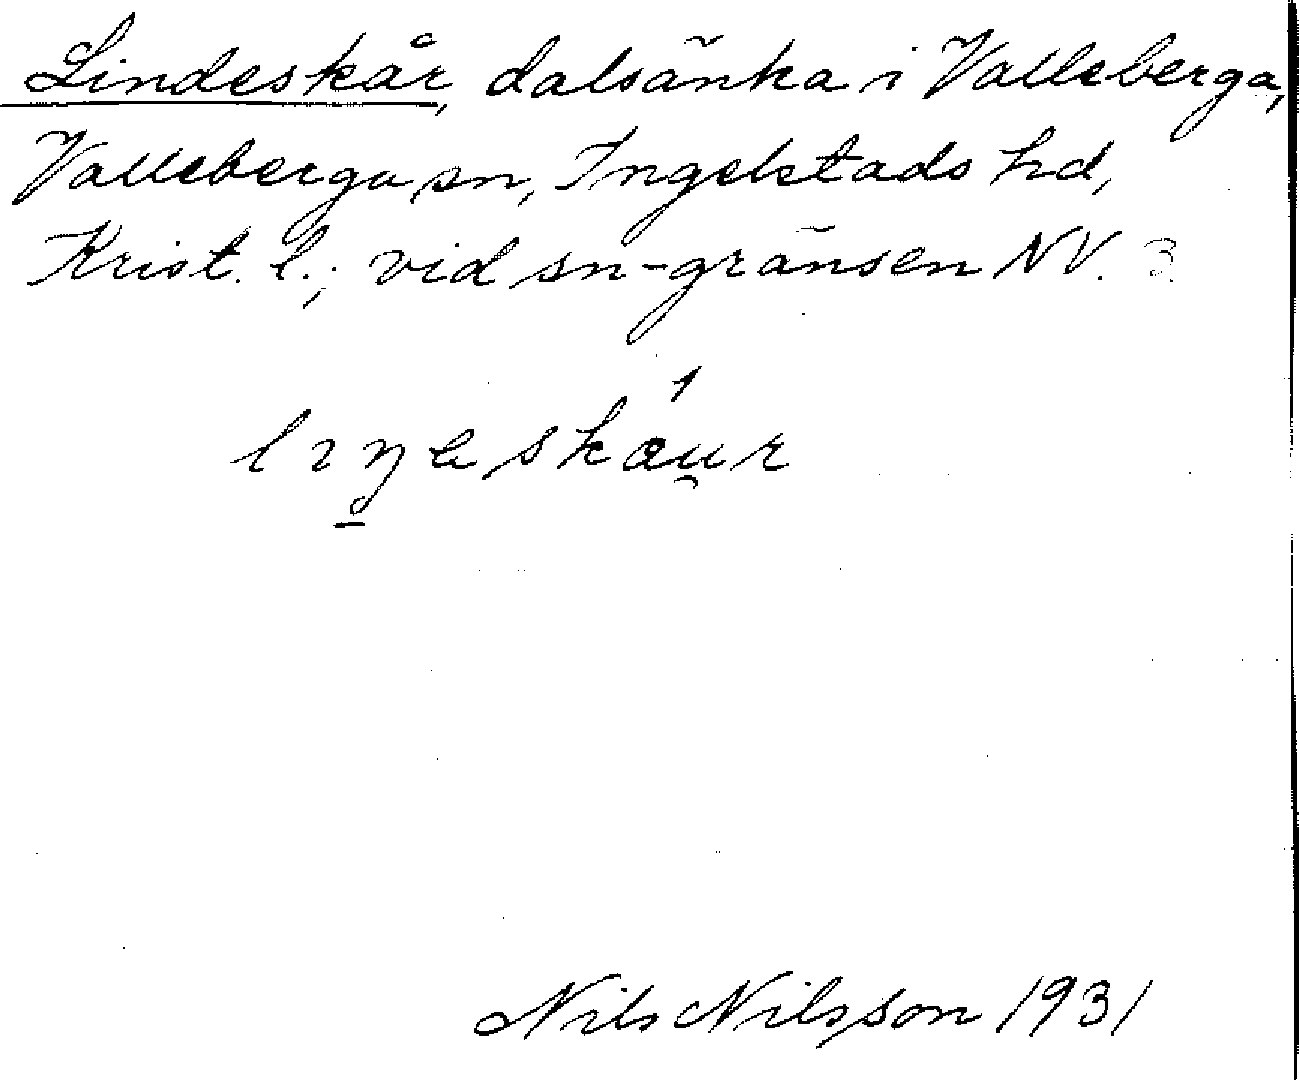 Lindeskår, dalsänka i Valleberga,
Valleberga sn, Ingelstads hd,
Krist. l.; vid sn-gränsen NV. 3.
Nils Nilsson 1931